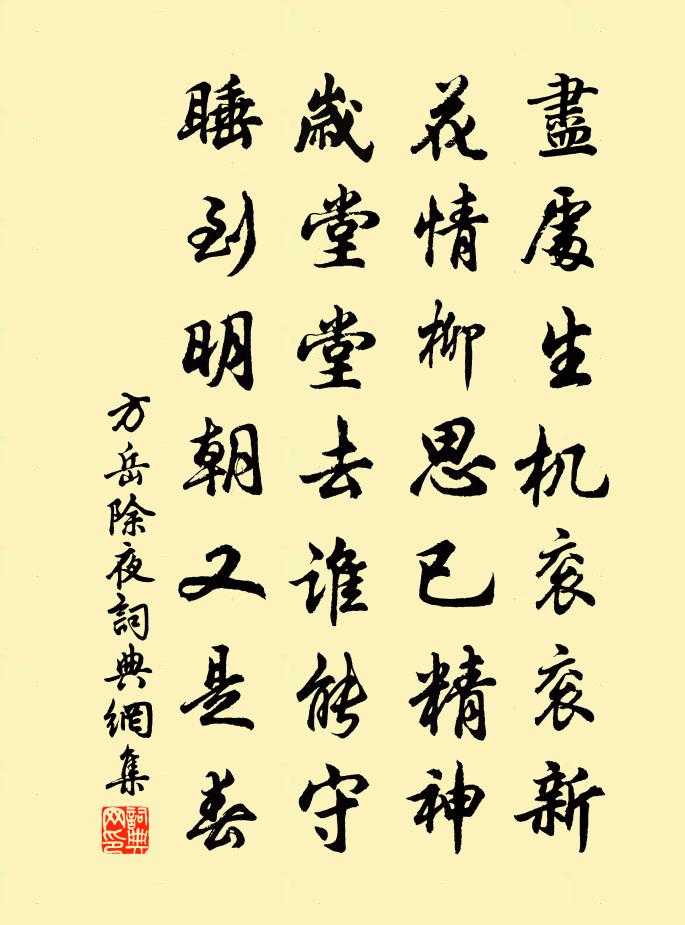 盡處生机衮衮新
花情柳思已精神
歲堂堂去誰能守
睡到明朝又是春
方岳除夜詞典網集
詞典網印